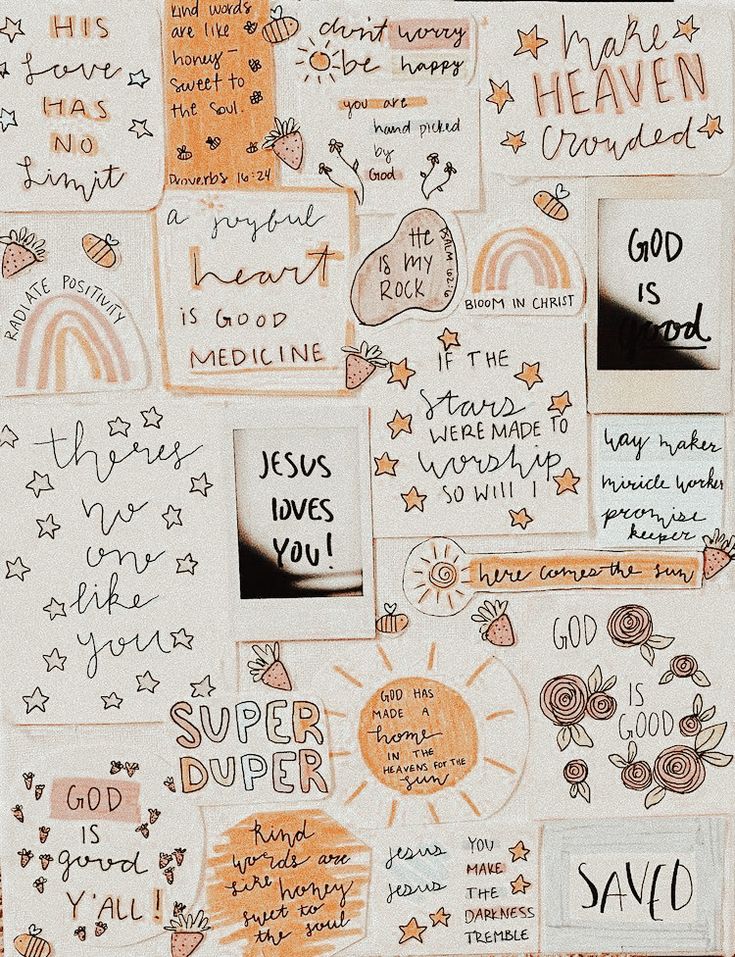 HIS
Love
HAS
NO
Limit
kind words
are like
honey-
sweet to
the soul.
Proverbs 16:24
don't worry
be happy
you are
hand picked
by
God
Make
HEAVEN
Crowded
RADIATE POSITIVITY
a joyful
heart
IS GOOD
MEDICINE
He
IS MY
ROCK
PSALM 62:6
BLOOM IN CHRIST
GOD
IS
good
theres
no
one
like
you
JESUS
LOVES
YOU!
IF THE
Stars
WERE MADE TO
worship
SO WILL I
way maker
miricle worker
promise
keeper
here comes the sun
SUPER
DUPER
GOD HAS
MADE A
home
IN THE
HEAVENS FOR THE
sun
GOD
IS
GOOD
GOD
IS
good
Y'ALL!
kind
words are
like honey
sweet to
the soul
Jesus
Jesus
YOU
MAKE
THE
DARKNESS
TREMBLE
SAVED